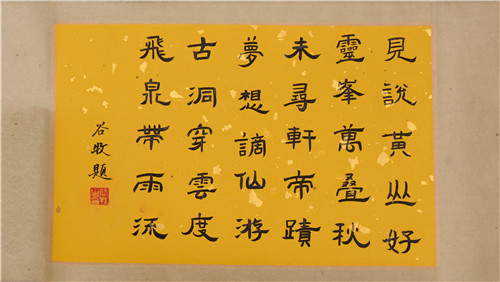 見說黃山好
靈峯萬疊秋
未尋軒帝蹟
夢想謫仙游
古洞穿雲度
飛泉帶雨流
谷牧題